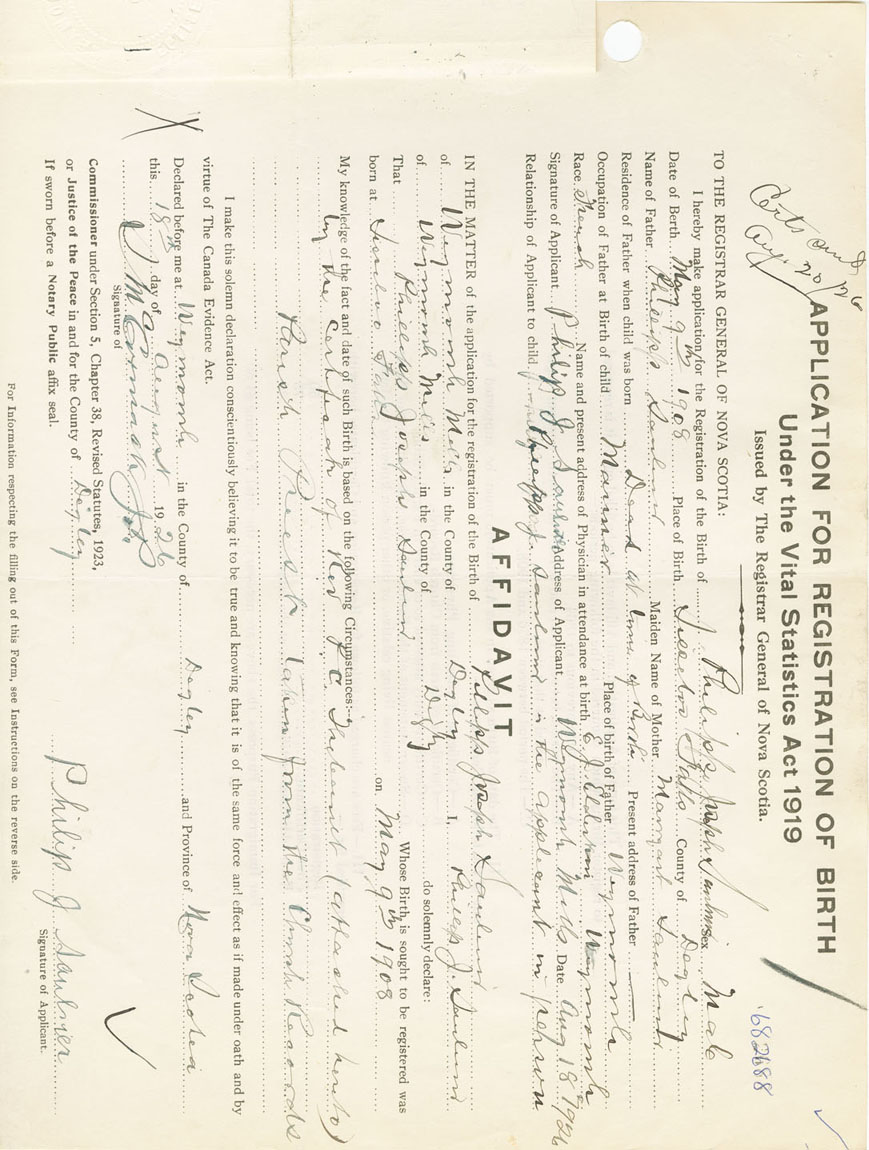 Certs
20/26
682688
APPLICATION FOR REGISTRATION OF BIRTH
Under the Vital Statistics Act 1919
Issued by The Registrar General of Nova Scotia.
TO THE REGISTRAR GENERAL OF NOVA SCOTIA:
I hereby make application for the Registration of the Birth of Philipp Joseph Saulnier Sex Male
Date of Berth May 9th 1908 Place of Birth Falls County of Digby
Name of Father Philipp Saulnier Maiden Name of Mother Margaret Saulnier
Residence of Father when child was born Dead at time of Birth Present address of Father
Occupation of Father at Birth of child Mariner Place of birth of Father Weymouth
Race French Name and present address of Physician in attendance at birth E J Weymouth
Signature of Applicant Philip J Saulnier Address of Applicant Weymouth Mills Date Aug 18 1926
Relationship of Applicant to child Philipp J. Saulnier is the applicant in person
AFFIDAVIT
IN THE MATTER of the application for the registration of the Birth of Philipp Joseph Saulnier
of Weymouth Mills in the County of Digby I, Philipp J. Saulnier
of Weymouth Mills in the County of Digby do solemnly declare:
That Philipp Joseph Saulnier Whose Birth is sought to be registered was
born at on May 9th 1908
My knowledge of the fact and date of such Birth is based on the following Circumstances:—
by the Certificate of Rev (attached hereto)
Parish Priest taken from the Church Records
I make this solemn declaration conscientiously believing it to be true and knowing that it is of the same force and effect as if made under oath and by
virtue of The Canada Evidence Act.
Declared before me at Weymouth in the County of Digby and Province of Nova Scotia
this 18th day of August 1926
Signature of
Commissioner under Section 5, Chapter 38, Revised Statutes, 1923,
or Justice of the Peace in and for the County of Digby
If sworn before a Notary Public affix seal.
Philip J Saulnier
Signature of Applicant.
For Information respecting the filling out of this Form, see Instructions on the reverse side.